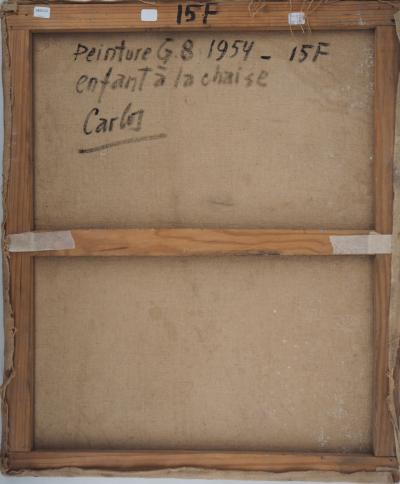 15F
Peinture G.8 1954 - 15F
enfant à la chaise
Carlos